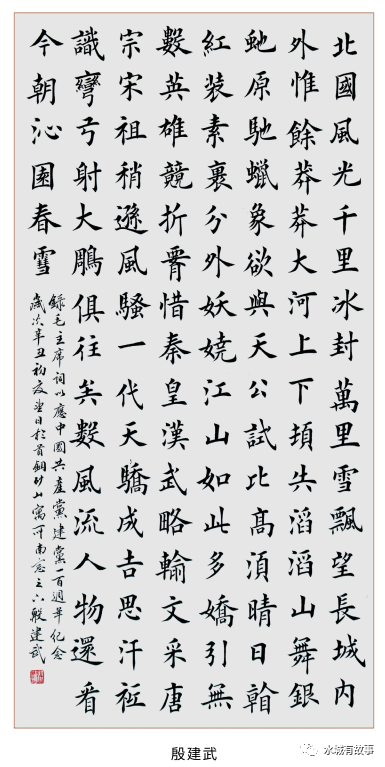 北國風光千里冰封萬里雪飄望長城内
外惟餘莽莽大河上下頓失滔滔山舞銀
虵原馳蠟象欲與天公試比高須晴日
紅装素裹分外妖嬈江山如此多嬌引無
數英雄競折惜秦皇漢武略輸文采唐
宗宋祖稍遜風騷一代天驕成吉思汗祗
識彎弓射大鵰俱往矣數風流人物還看
今朝沁園春雪
錄毛主席詞以應中國共產黨建黨一百週年紀念
歲次辛丑初夏望日於首銅山寓所南窗之下殷建武
殷建武
水城有故事